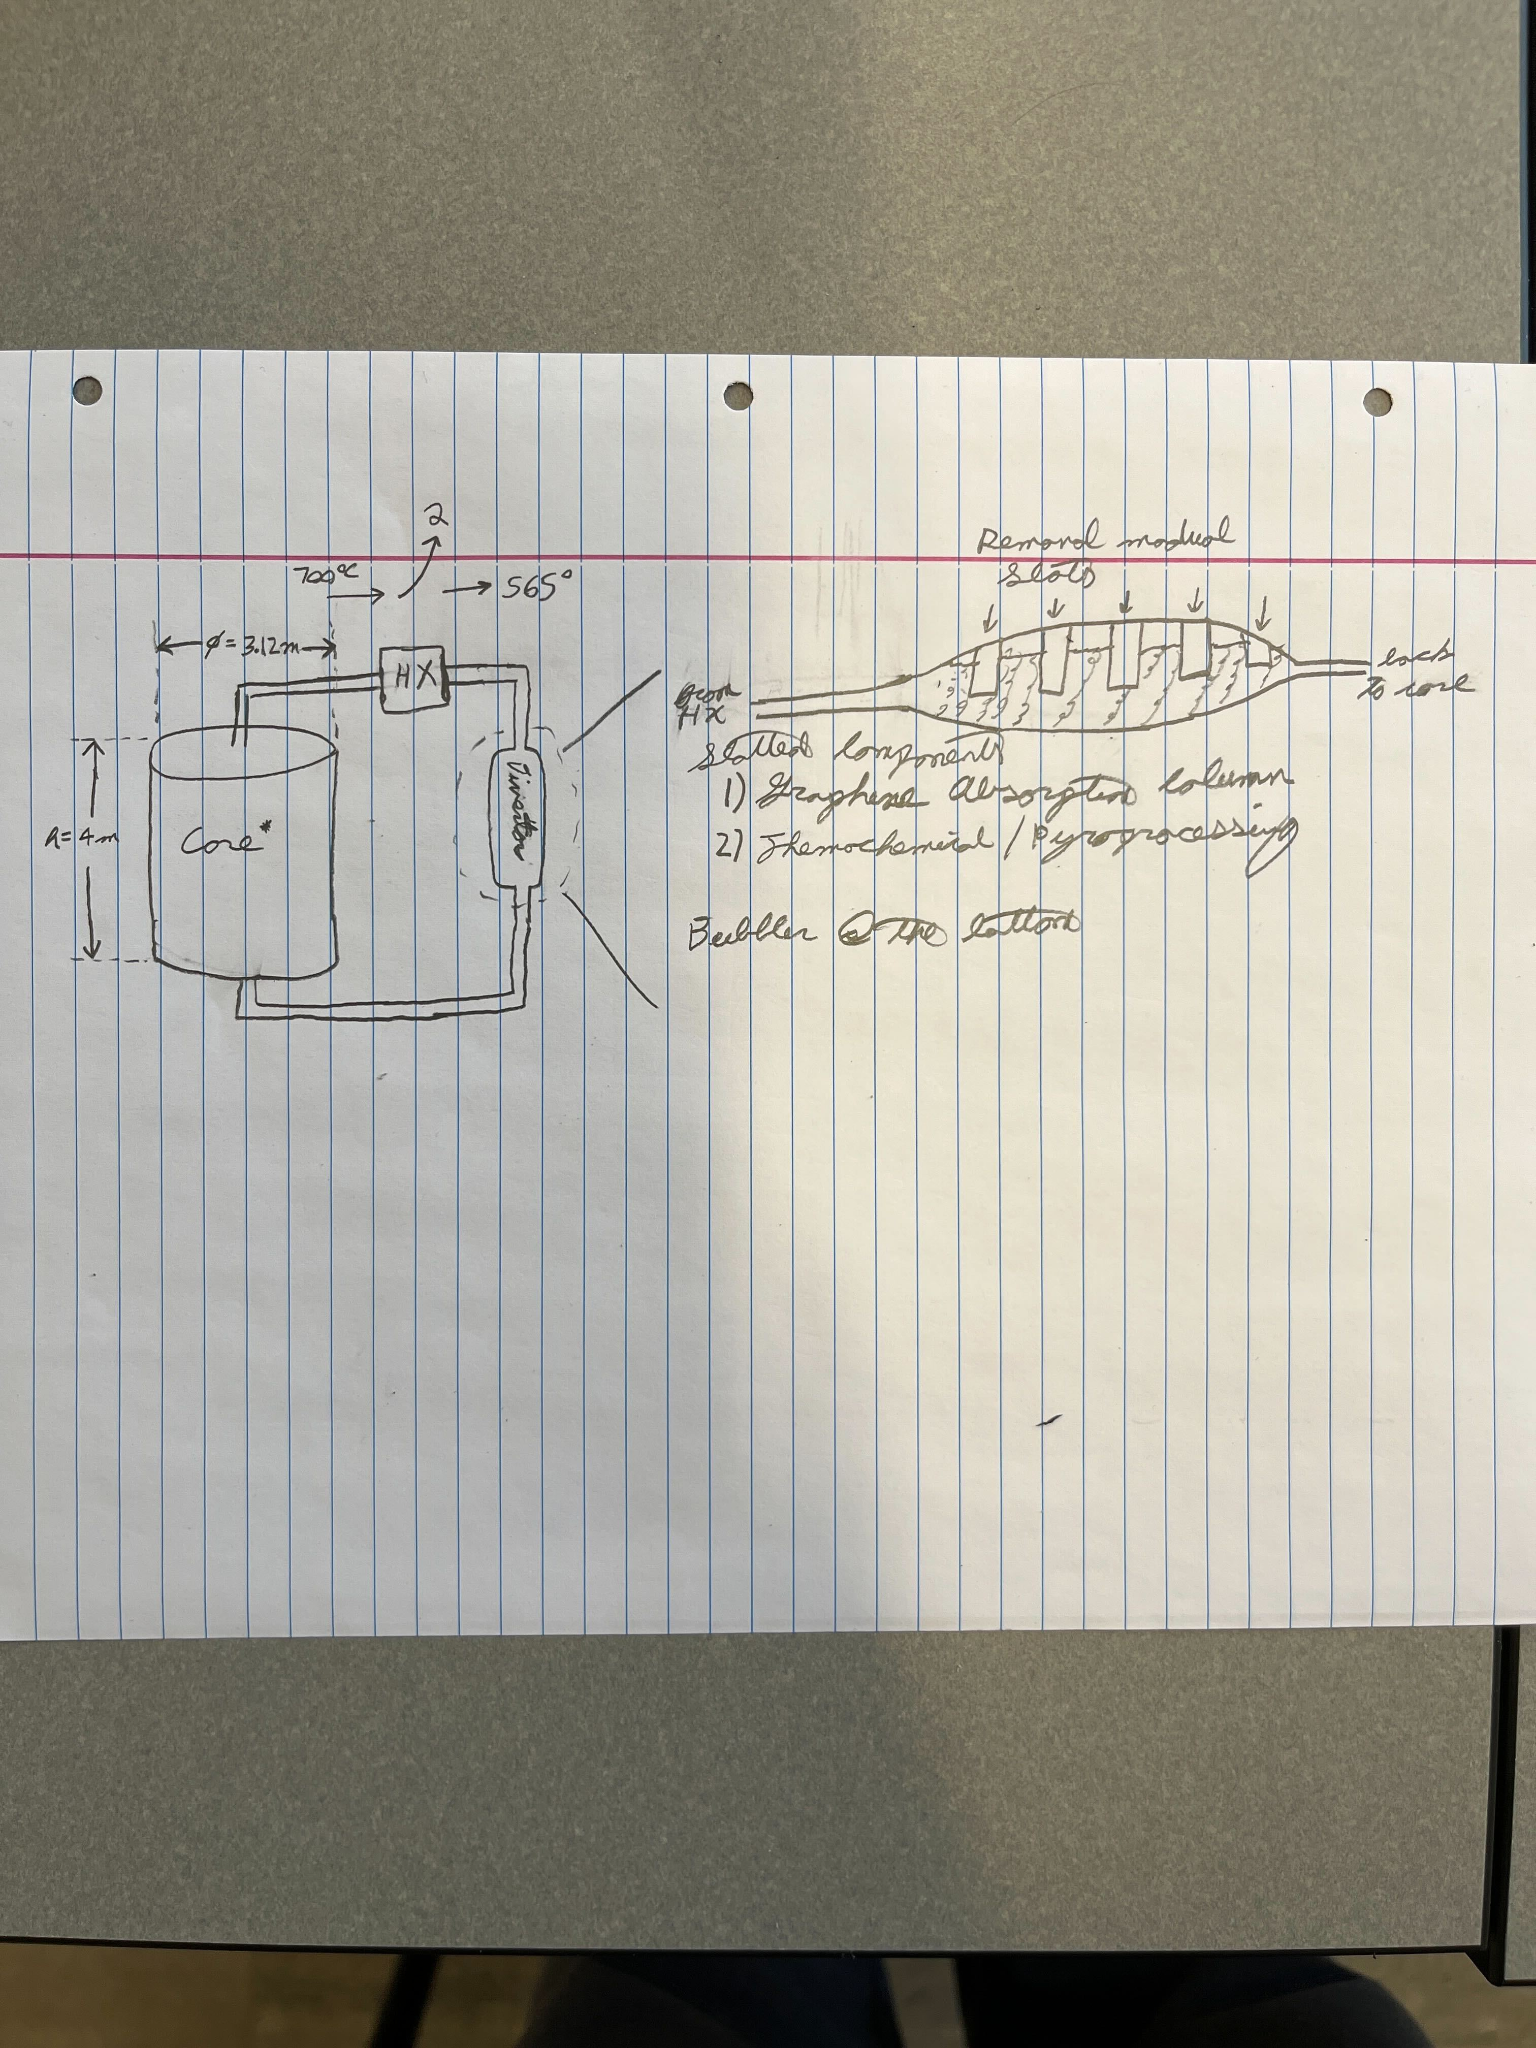 2
700°C → → 565°
φ = 3.12m
HX
h = 4m
Core*
Divertor
Removal modual
slots
from
HX
back
to core
Slotted components
1) Graphene Absorption Column
2) Themochemical / Pyroprocessing
Bubbler @ the bottom